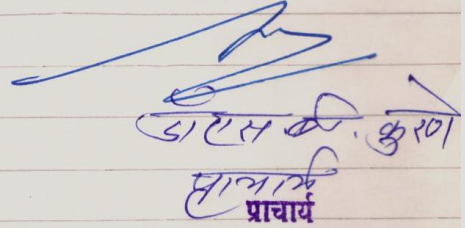 डॉ एस बी. कुरणे
प्राचार्य
प्राचार्य